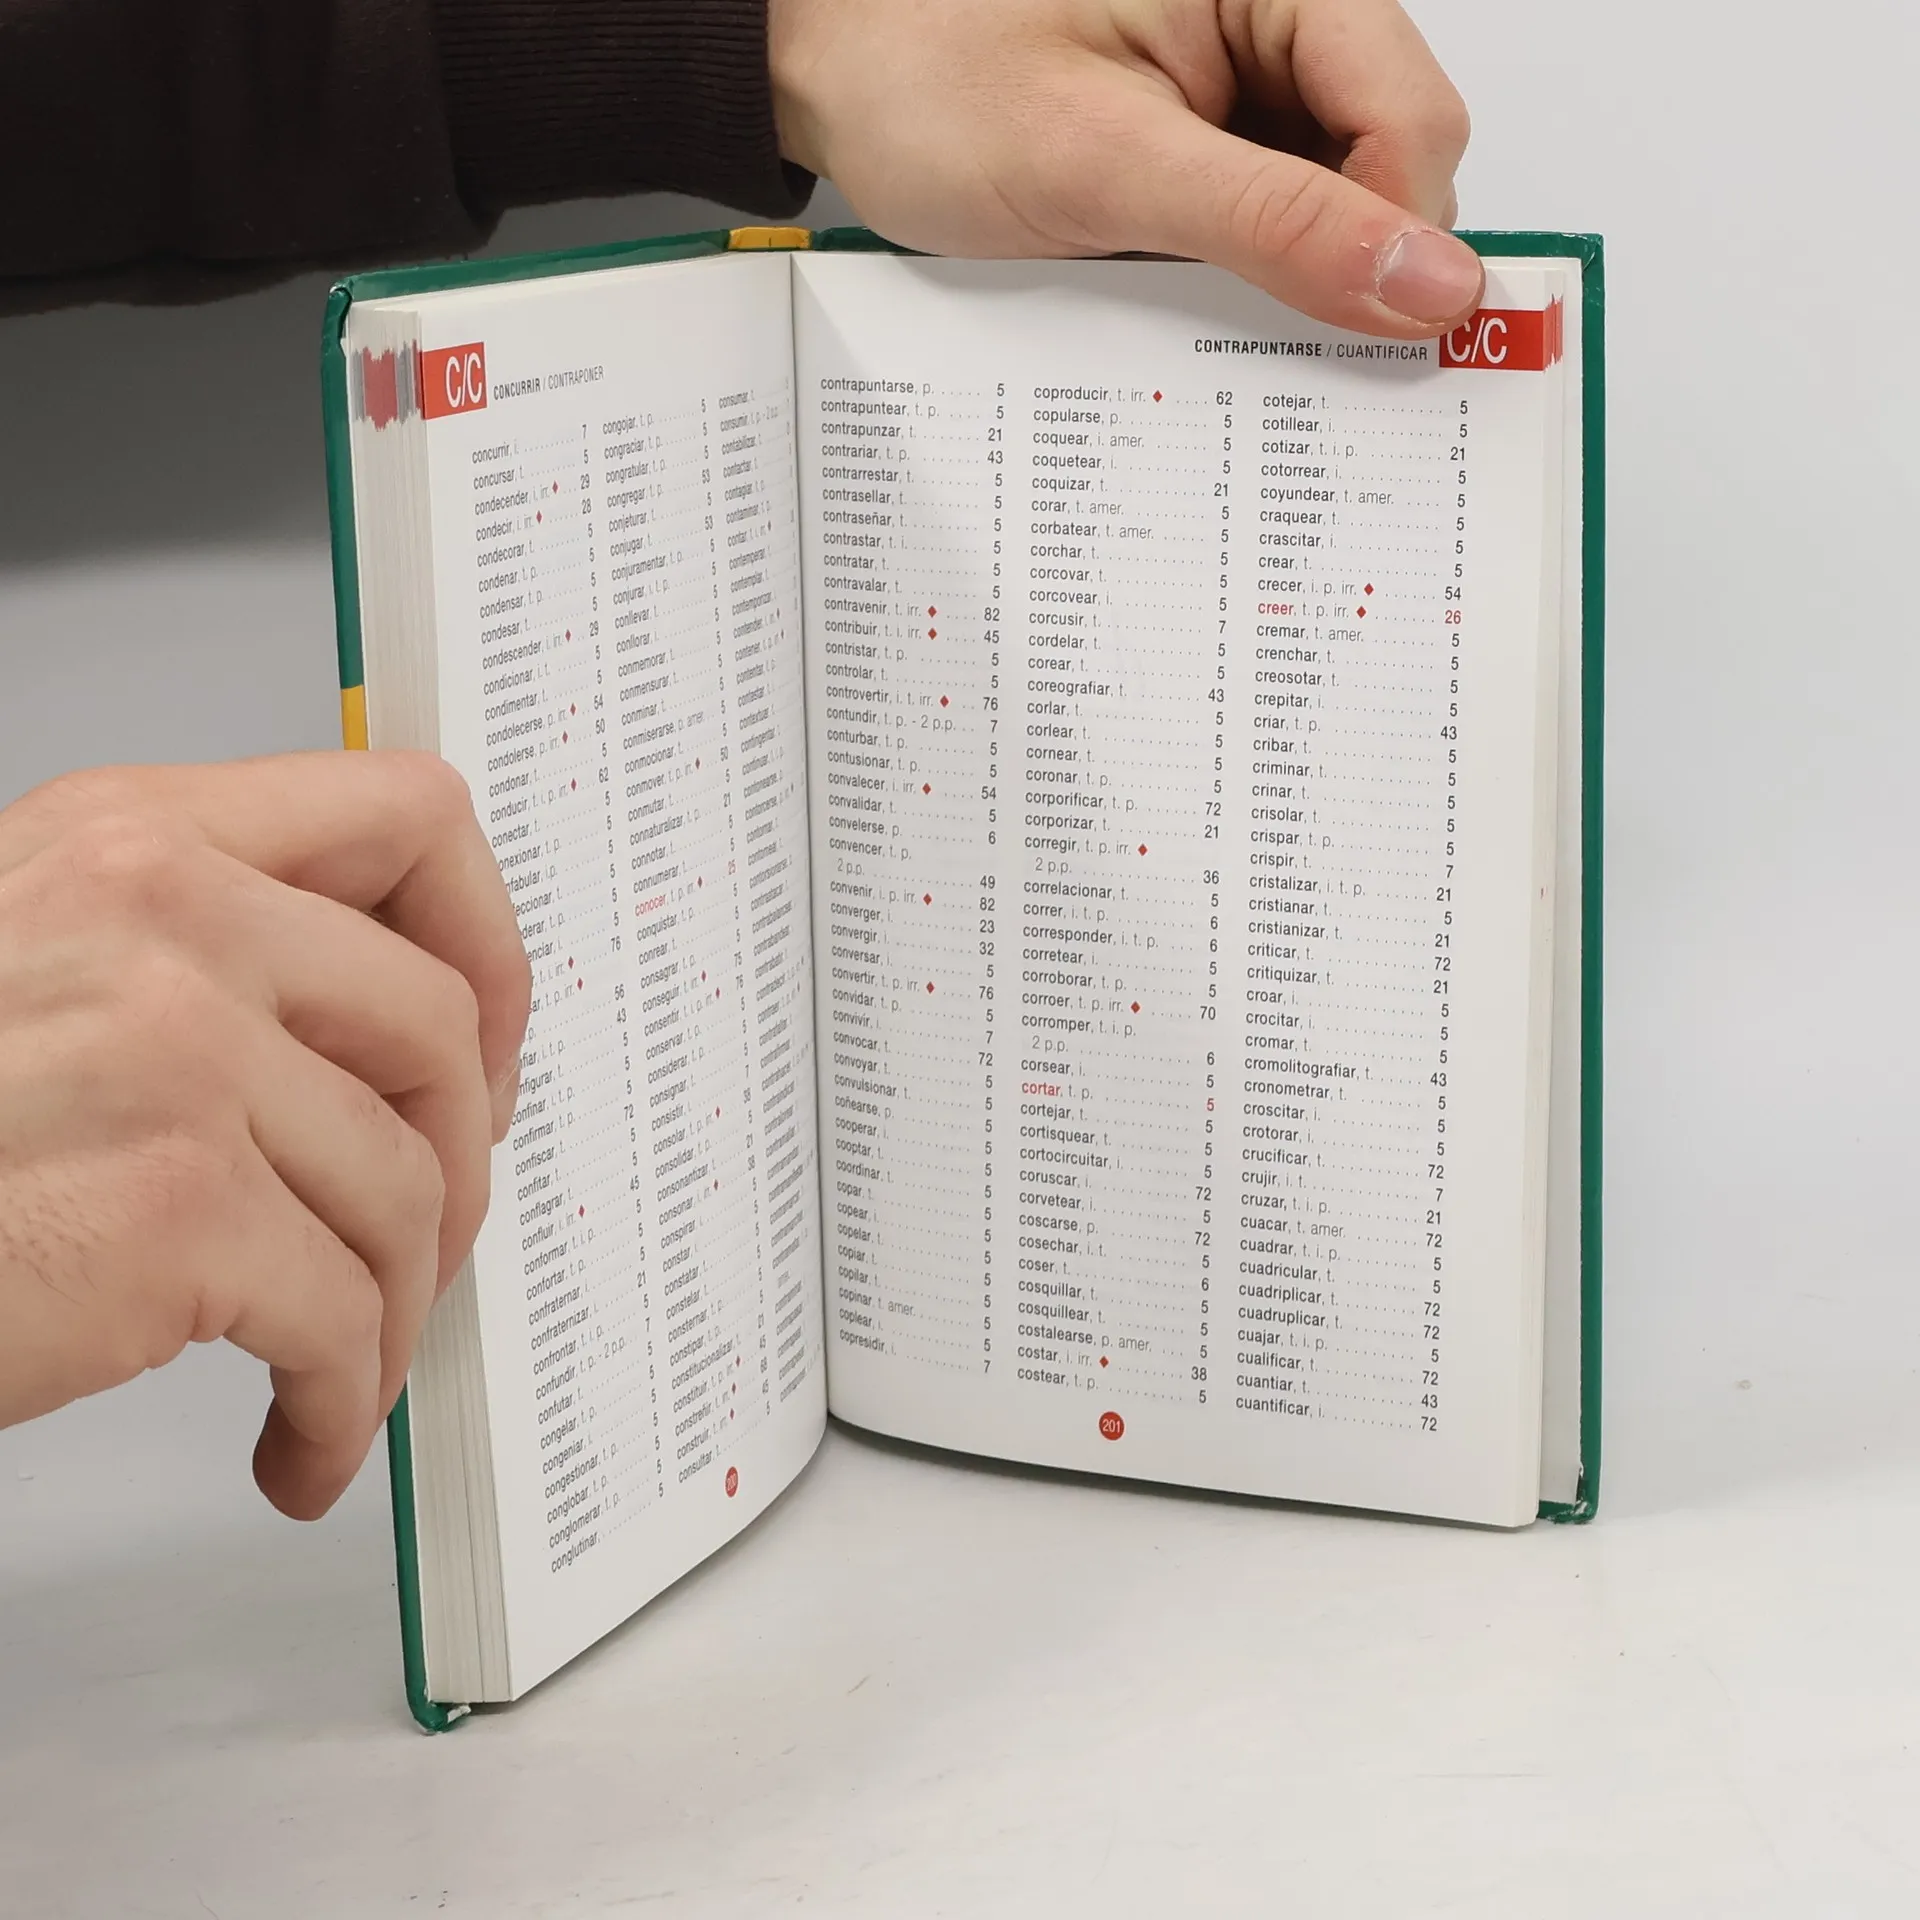 C/C CONCURRIR / CONTRAPONER
concurrir, i. 7
concursar, t. 5
condecender, i. irr. ♦ 29
condecir, i. irr. ♦ 28
condecorar, t. 5
condenar, t. p. 5
condensar, t. p. 5
condesar, t. 5
condescender, i. irr. ♦ 29
condicionar, i. t. 5
condimentar, t. 5
condolecerse, p. irr. ♦ 54
condolerse, p. irr. ♦ 50
condonar, t. 5
conducir, t. i. p. irr. ♦ 62
conectar, t. 5
t. p. 5
i.p. 5
t. 5
t. p. 5
i. 5
t. i. irr. ♦ 76
t. p. irr. ♦
56
i. t. p. 43
t. 5
confinar, i. t. p. 5
confirmar, t. p. 5
confiscar, t. 72
confitar, t. 5
conflagrar, t. 5
confluir, i. irr. ♦ 45
conformar, t. i. p. 5
confortar, t. p. 5
confraternar, i. 5
confraternizar, i. 21
confrontar, t. i. p. 5
confundir, t. p. - 2 p.p. 7
confutar, t. 5
congelar, t. p. 5
congeniar, i. 5
congestionar, t. p. 5
conglobar, t. p. 5
conglomerar, t. p. 5
conglutinar, 5
congojar, t. p. 5
congraciar, t. p. 5
congratular, t. p. 5
congregar, t. p. 53
conjeturar, t. 5
conjugar, t. 53
conjuramentar, t. p. 5
conjurar, i. t. p. 5
conllevar, t. 5
conllorar, i. 5
conmemorar, t. 5
conmensurar, t. 5
conminar, t. 5
conmiserarse, p. amer. 5
conmocionar, t. 5
conmover, t. p. irr. ♦ 50
conmutar, t. 5
connaturalizar, t. p. 21
connotar, t. 5
connumerar, t. 5
conocer, t. p. irr. ♦ 25
conquistar, t. p. 5
conrear, t. 5
consagrar, t. p. 5
conseguir, t. irr. ♦ 75
consentir, t. i. p. irr. ♦ 76
conservar, t. p. 5
considerar, t. p. 5
consignar, t. 5
consistir, i. 7
consolar, t. p. irr. ♦ 38
consolidar, t. p. 5
consonantizar, t. 21
consonar, i. irr. ♦ 38
conspirar, i. 5
constar, i. 5
constatar, t. 5
constelar, t. 5
consternar, t. p. 5
constipar, t. p. 5
constitucionalizar, t. 21
constituir, t. p. irr. ♦ 45
constreñir, t. irr. ♦ 68
construir, t. irr. ♦ 45
consultar, t. 5
consumar, t.
consumir, t. p. - 2 p.p.
contabilizar, t.
contactar, t.
contagiar, t. p.
contaminar, t. p.
contar, t. i. irr. ♦
contemperar, t.
contemplar, t.
contemporizar,
contender, i. irr. ♦
contener, t. p. irr. ♦
contentar, t. p.
contestar, t. i.
contextuar, t.
contingentar, t.
continuar, t. i. p.
contonearse, p.
contorcerse, p. irr. ♦
contornar, t.
contornear, t.
contorsionarse, p.
contraatacar, t.
contrabalancear,
contrabandear,
contrabatir, t.
200
CONTRAPUNTARSE / CUANTIFICAR C/C
contrapuntarse, p. 5
contrapuntear, t. p. 5
contrapunzar, t. 21
contrariar, t. p. 43
contrarrestar, t. 5
contrasellar, t. 5
contraseñar, t. 5
contrastar, t. i. 5
contratar, t. 5
contravalar, t. 5
contravenir, t. irr. ♦ 82
contribuir, t. i. irr. ♦ 45
contristar, t. p. 5
controlar, t. 5
controvertir, i. t. irr. ♦ 76
contundir, t. p. - 2 p.p. 7
conturbar, t. p. 5
contusionar, t. p. 5
convalecer, i. irr. ♦ 54
convalidar, t. 5
convelerse, p. 6
convencer, t. p.
2 p.p. 49
convenir, i. p. irr. ♦ 82
converger, i. 23
convergir, i. 32
conversar, i. 5
convertir, t. p. irr. ♦ 76
convidar, t. p. 5
convivir, i. 7
convocar, t. 72
convoyar, t. 5
convulsionar, t. 5
coñearse, p. 5
cooperar, i. 5
cooptar, t. 5
coordinar, t. 5
copar, t. 5
copear, i. 5
copelar, t. 5
copiar, t. 5
copilar, t. 5
copinar, t. amer. 5
coplear, i. 5
copresidir, i. 7
coproducir, t. irr. ♦ 62
copularse, p. 5
coquear, i. amer. 5
coquetear, i. 5
coquizar, t. 21
corar, t. amer. 5
corbatear, t. amer. 5
corchar, t. 5
corcovar, t. 5
corcovear, i. 5
corcusir, t. 7
cordelar, t. 5
corear, t. 5
coreografiar, t. 43
corlar, t. 5
corlear, t. 5
cornear, t. 5
coronar, t. p. 5
corporificar, t. p. 72
corporizar, t. 21
corregir, t. p. irr. ♦
2 p.p. 36
correlacionar, t. 5
correr, i. t. p. 6
corresponder, i. t. p. 6
corretear, i. 5
corroborar, t. p. 5
corroer, t. p. irr. ♦ 70
corromper, t. i. p.
2 p.p. 6
corsear, i. 5
cortar, t. p. 5
cortejar, t. 5
cortisquear, t. 5
cortocircuitar, i. 5
coruscar, i. 72
corvetear, i. 5
coscarse, p. 72
cosechar, i. t. 5
coser, t. 6
cosquillar, t. 5
cosquillear, t. 5
costalearse, p. amer. 5
costar, i. irr. ♦ 38
costear, t. p. 5
cotejar, t. 5
cotillear, i. 5
cotizar, t. i. p. 21
cotorrear, i. 5
coyundear, t. amer. 5
craquear, t. 5
crascitar, i. 5
crear, t. 5
crecer, i. p. irr. ♦ 54
creer, t. p. irr. ♦ 26
cremar, t. amer. 5
crenchar, t. 5
creosotar, t. 5
crepitar, i. 5
criar, t. p. 43
cribar, t. 5
criminar, t. 5
crinar, t. 5
crisolar, t. 5
crispar, t. p. 5
crispir, t. 7
cristalizar, i. t. p. 21
cristianar, t. 5
cristianizar, t. 21
criticar, t. 72
critiquizar, t. 21
croar, i. 5
crocitar, i. 5
cromar, t. 5
cromolitografiar, t. 43
cronometrar, t. 5
croscitar, i. 5
crotorar, i. 5
crucificar, t. 72
crujir, i. t. 7
cruzar, t. i. p. 21
cuacar, t. amer. 72
cuadrar, t. i. p. 5
cuadricular, t. 5
cuadriplicar, t. 72
cuadruplicar, t. 72
cuajar, t. i. p. 5
cualificar, t. 72
cuantiar, t. 43
cuantificar, i. 72
201